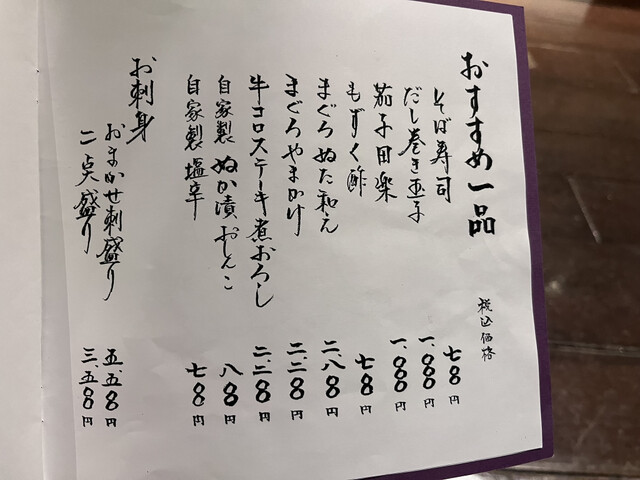 おすすめ一品 税込価格
そば寿司 七〇〇円
だし巻き玉子 一、〇〇〇円
茄子田楽 一、〇〇〇円
もずく酢 七〇〇円
まぐろぬた和え 二、八〇〇円
まぐろやまかけ 二、二〇〇円
牛コロステーキ煮おろし 二、二〇〇円
自家製ぬか漬おしんこ 八〇〇円
自家製塩辛 七〇〇円
お刺身
おまかせ刺盛り 五、五〇〇円
二点盛り 三、五〇〇円